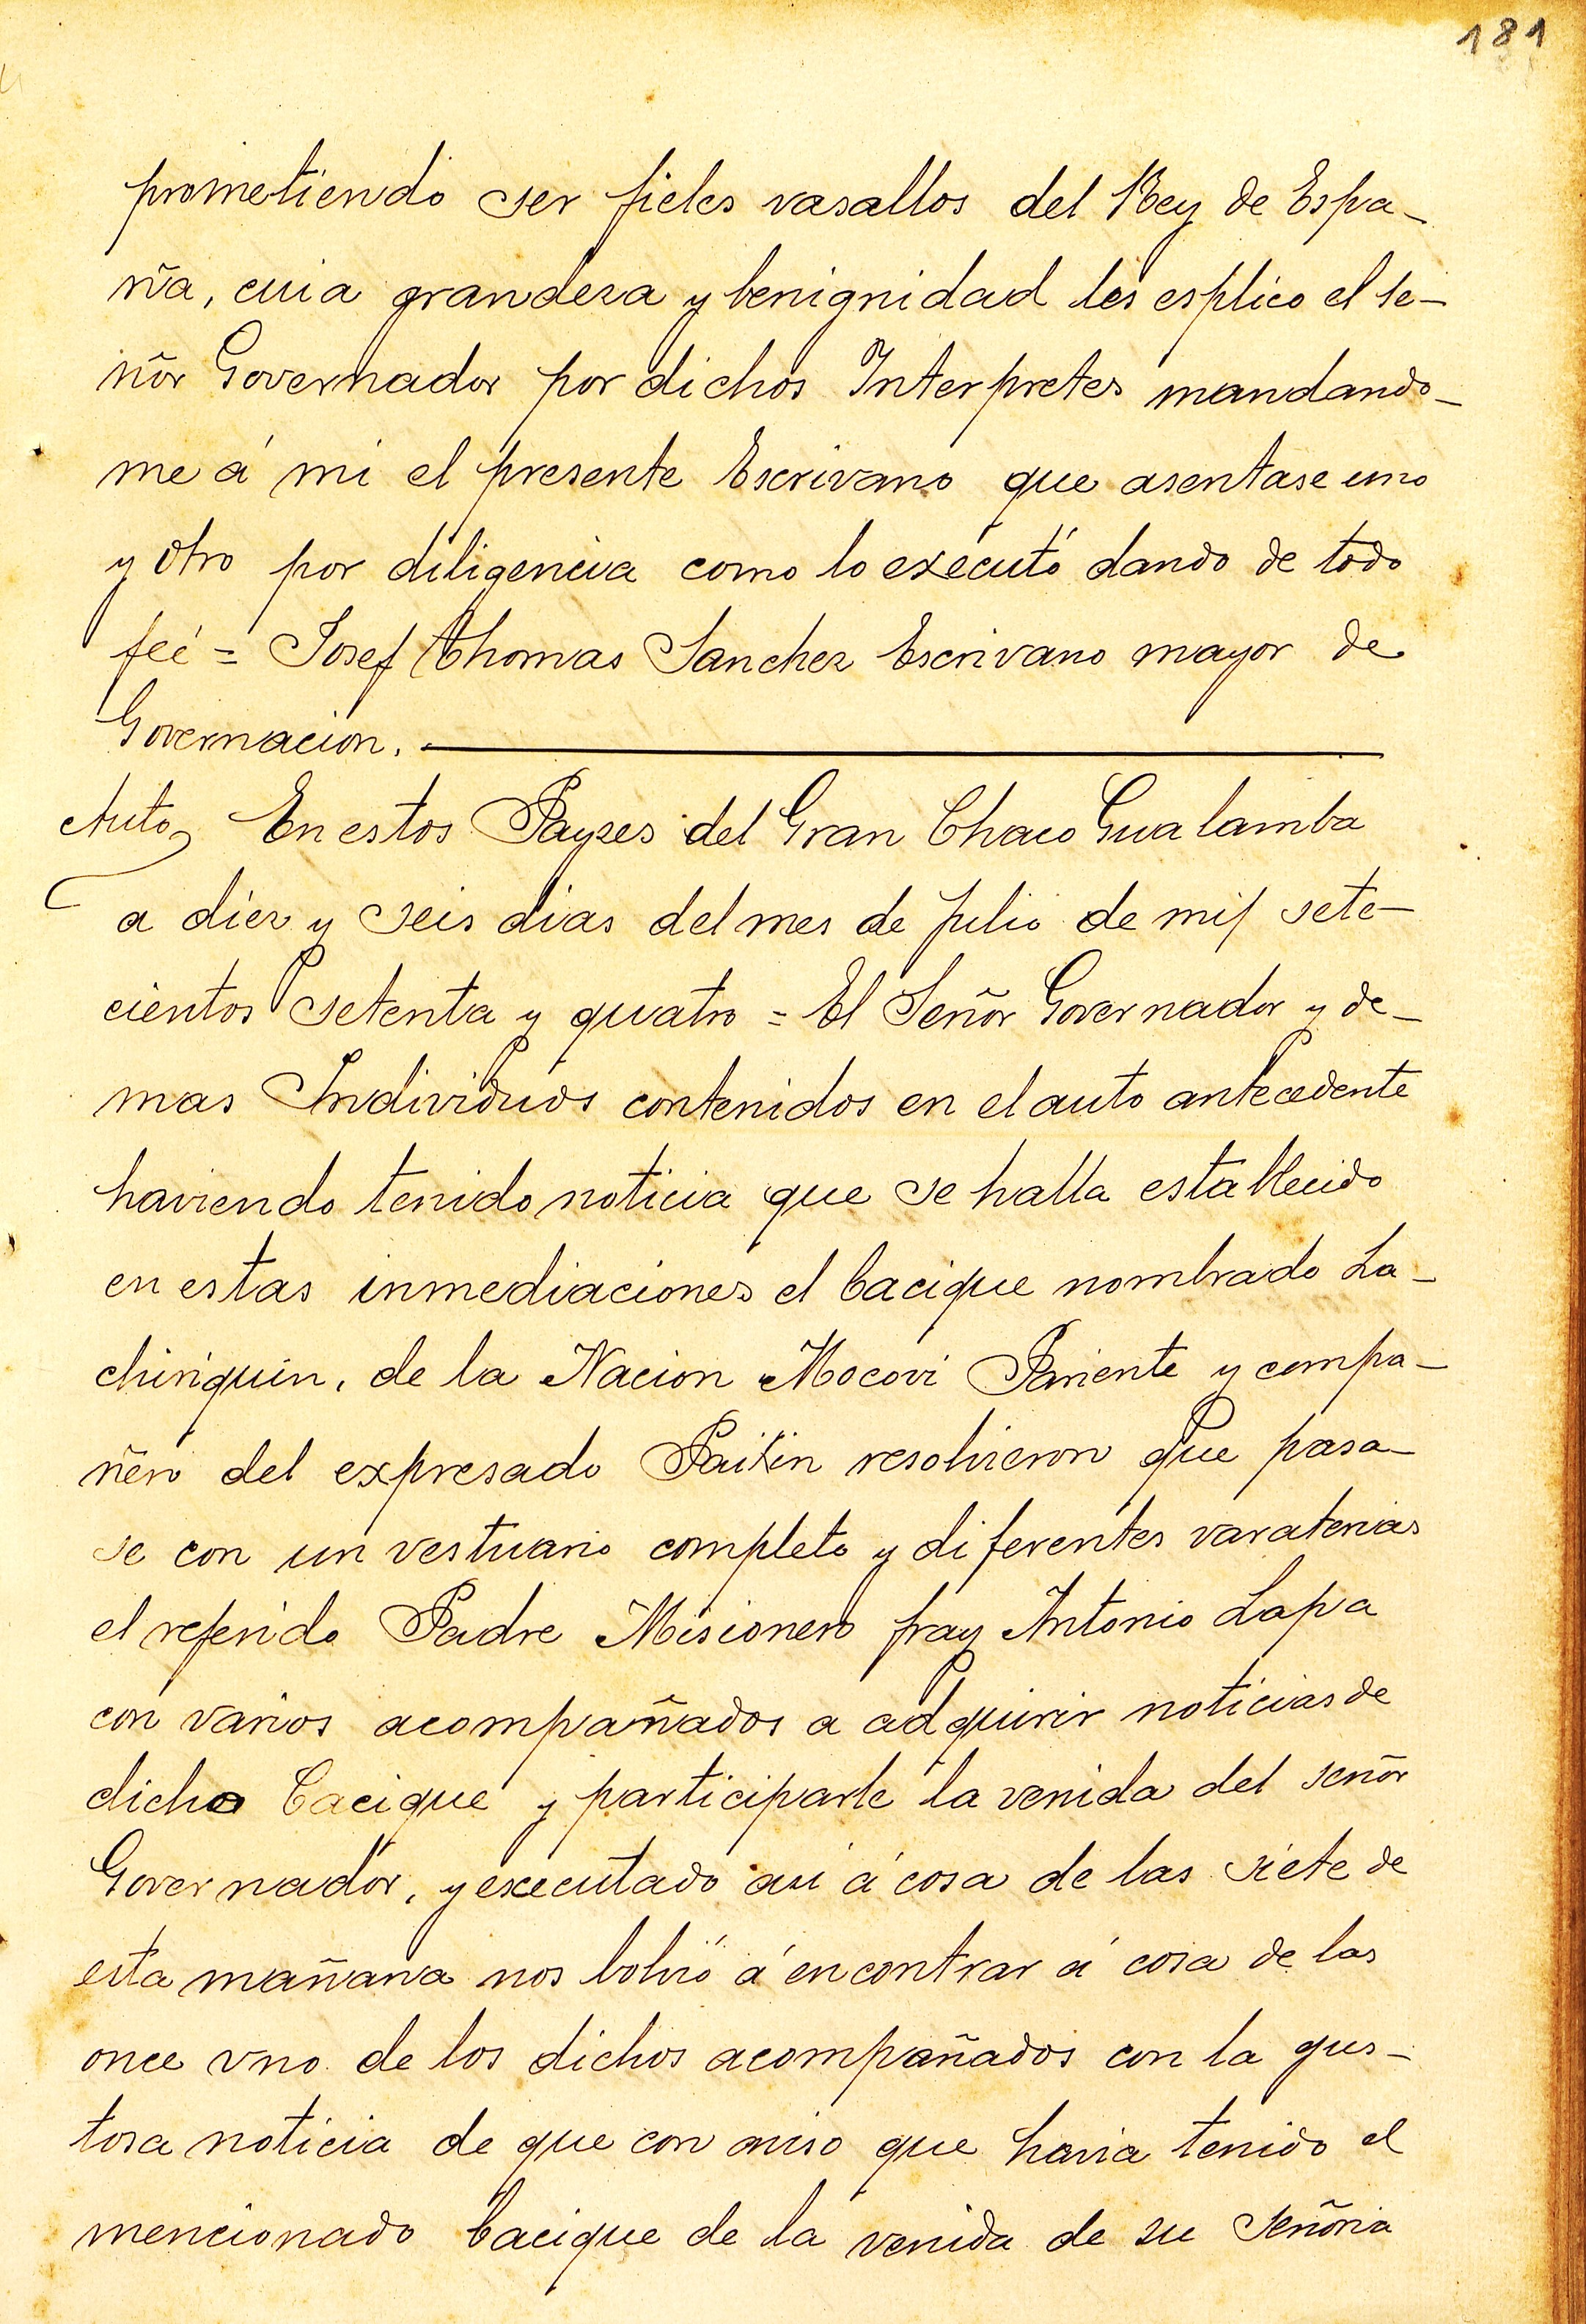 181
prometiendo ser fieles vasallos del Rey de Espa-
ña, cuia grandeza y benignidad les esplico el se-
ñor Governador por dichos Interpretes mandando-
me á mi el presente Escrivano que asentase uno
y otro por diligencia como lo executó dando de todo
feé = Josef Thomas Sanchez Escrivano mayor de
Governacion.
Auto En estos Payses del Gran Chaco Gualamba
a diez y seis dias del mes de Julio de mil sete-
cientos setenta y quatro = El Señor Governador y de-
mas Individuos contenidos en el auto antecedente
haviendo tenido noticia que se halla establecido
en estas inmediaciones el Cacique nombrado La-
chiriquin, de la Nacion Mocovi Pariente y compa-
ñero del expresado Paikin resolvieron que pasa-
se con un vestuario completo y diferentes varaterias
el referido Padre Misionero fray Antonio Lapa
con varios acompañados a adquirir noticias de
dicho Cacique y participarle la venida del señor
Governador, y executado asi á cosa de las siete de
esta mañana nos bolvió á encontrar á cosa de las
once vno de los dichos acompañados con la gus-
tosa noticia de que con aviso que havia tenido el
mencionado Cacique de la venida de su Señoria